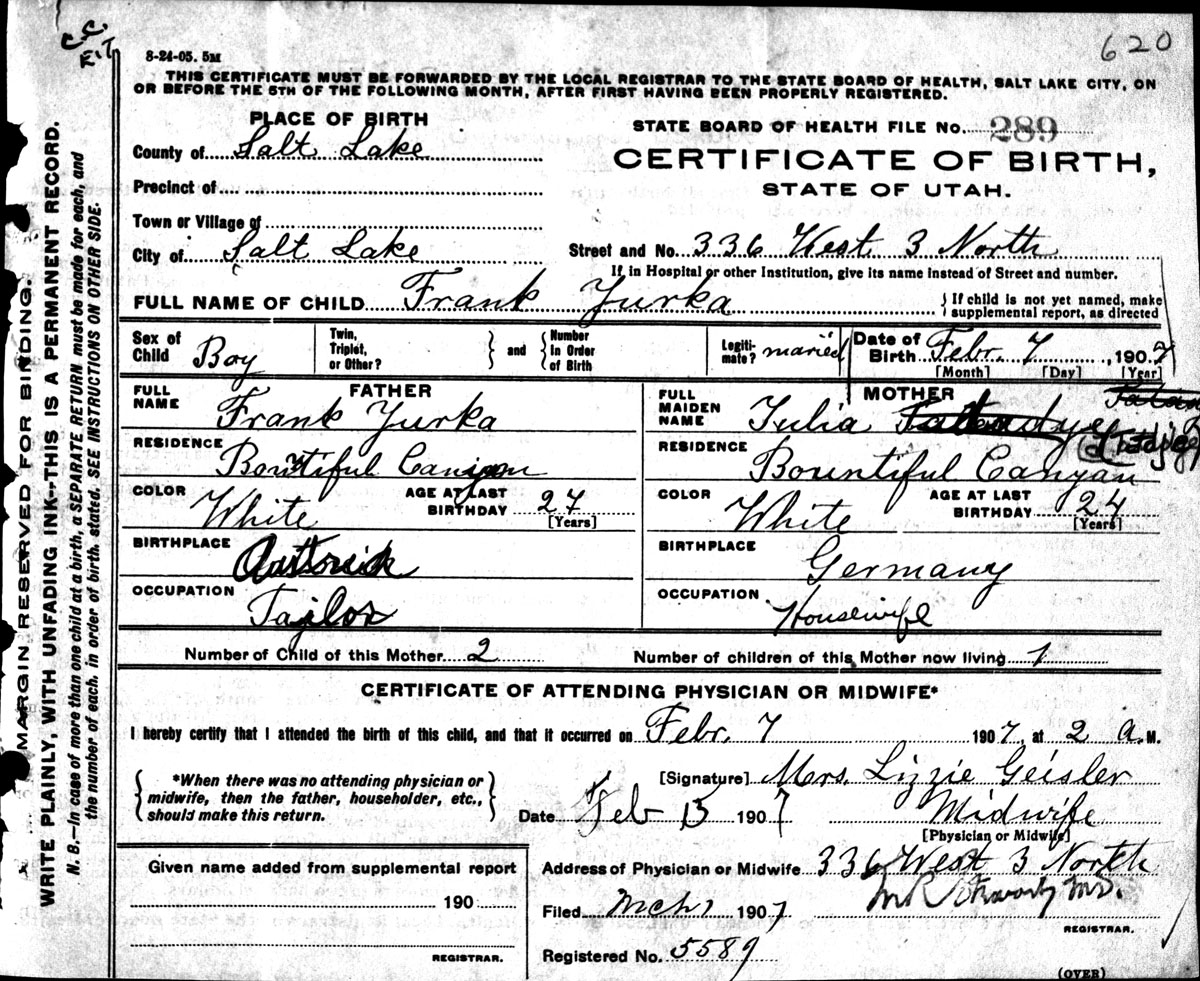 620
8-24-05. 5M
THIS CERTIFICATE MUST BE FORWARDED BY THE LOCAL REGISTRAR TO THE STATE BOARD OF HEALTH, SALT LAKE CITY, ON
OR BEFORE THE 5TH OF THE FOLLOWING MONTH, AFTER FIRST HAVING BEEN PROPERLY REGISTERED.
MARGIN RESERVED FOR BINDING.
WRITE PLAINLY, WITH UNFADING INK--THIS IS A PERMANENT RECORD.
N. B.—In case of more than one child at a birth, a SEPARATE RETURN must be made for each, and
the number of each, in order of birth, stated. SEE INSTRUCTIONS ON OTHER SIDE.
PLACE OF BIRTH
County of Salt Lake
Precinct of
Town or Village of
City of Salt Lake
STATE BOARD OF HEALTH FILE No. 289
CERTIFICATE OF BIRTH,
STATE OF UTAH.
Street and No. 336 West 3 North
If in Hospital or other Institution, give its name instead of Street and number.
FULL NAME OF CHILD Frank Yurka
{ If child is not yet named, make
supplemental report, as directed
Sex of Child Boy
Twin, Triplet, or Other? } and { Number In Order of Birth
Legiti-mate? maried
Date of Birth Febr. 7, 1907
[Month] [Day] [Year]
FATHER
FULL NAME Frank Yurka
RESIDENCE Bountiful Canyon
COLOR White AGE AT LAST BIRTHDAY 27 [Years]
BIRTHPLACE
OCCUPATION Taylor
MOTHER
FULL MAIDEN NAME Julia
RESIDENCE Bountiful Canyan
COLOR White AGE AT LAST BIRTHDAY 24 [Years]
BIRTHPLACE Germany
OCCUPATION Housewife
Number of Child of this Mother 2 Number of children of this Mother now living 1
CERTIFICATE OF ATTENDING PHYSICIAN OR MIDWIFE*
I hereby certify that I attended the birth of this child, and that it occurred on Febr. 7 1907, at 2 a. M.
{ *When there was no attending physician or
midwife, then the father, householder, etc.,
should make this return. }
[Signature] Mrs. Lizzie Geisler
Date Feb 15 1907 Midwife
[Physician or Midwife]
Given name added from supplemental report
190
REGISTRAR.
Address of Physician or Midwife 336 West 3 North
Filed Mch 1 1907
REGISTRAR.
Registered No. 5589
(OVER)